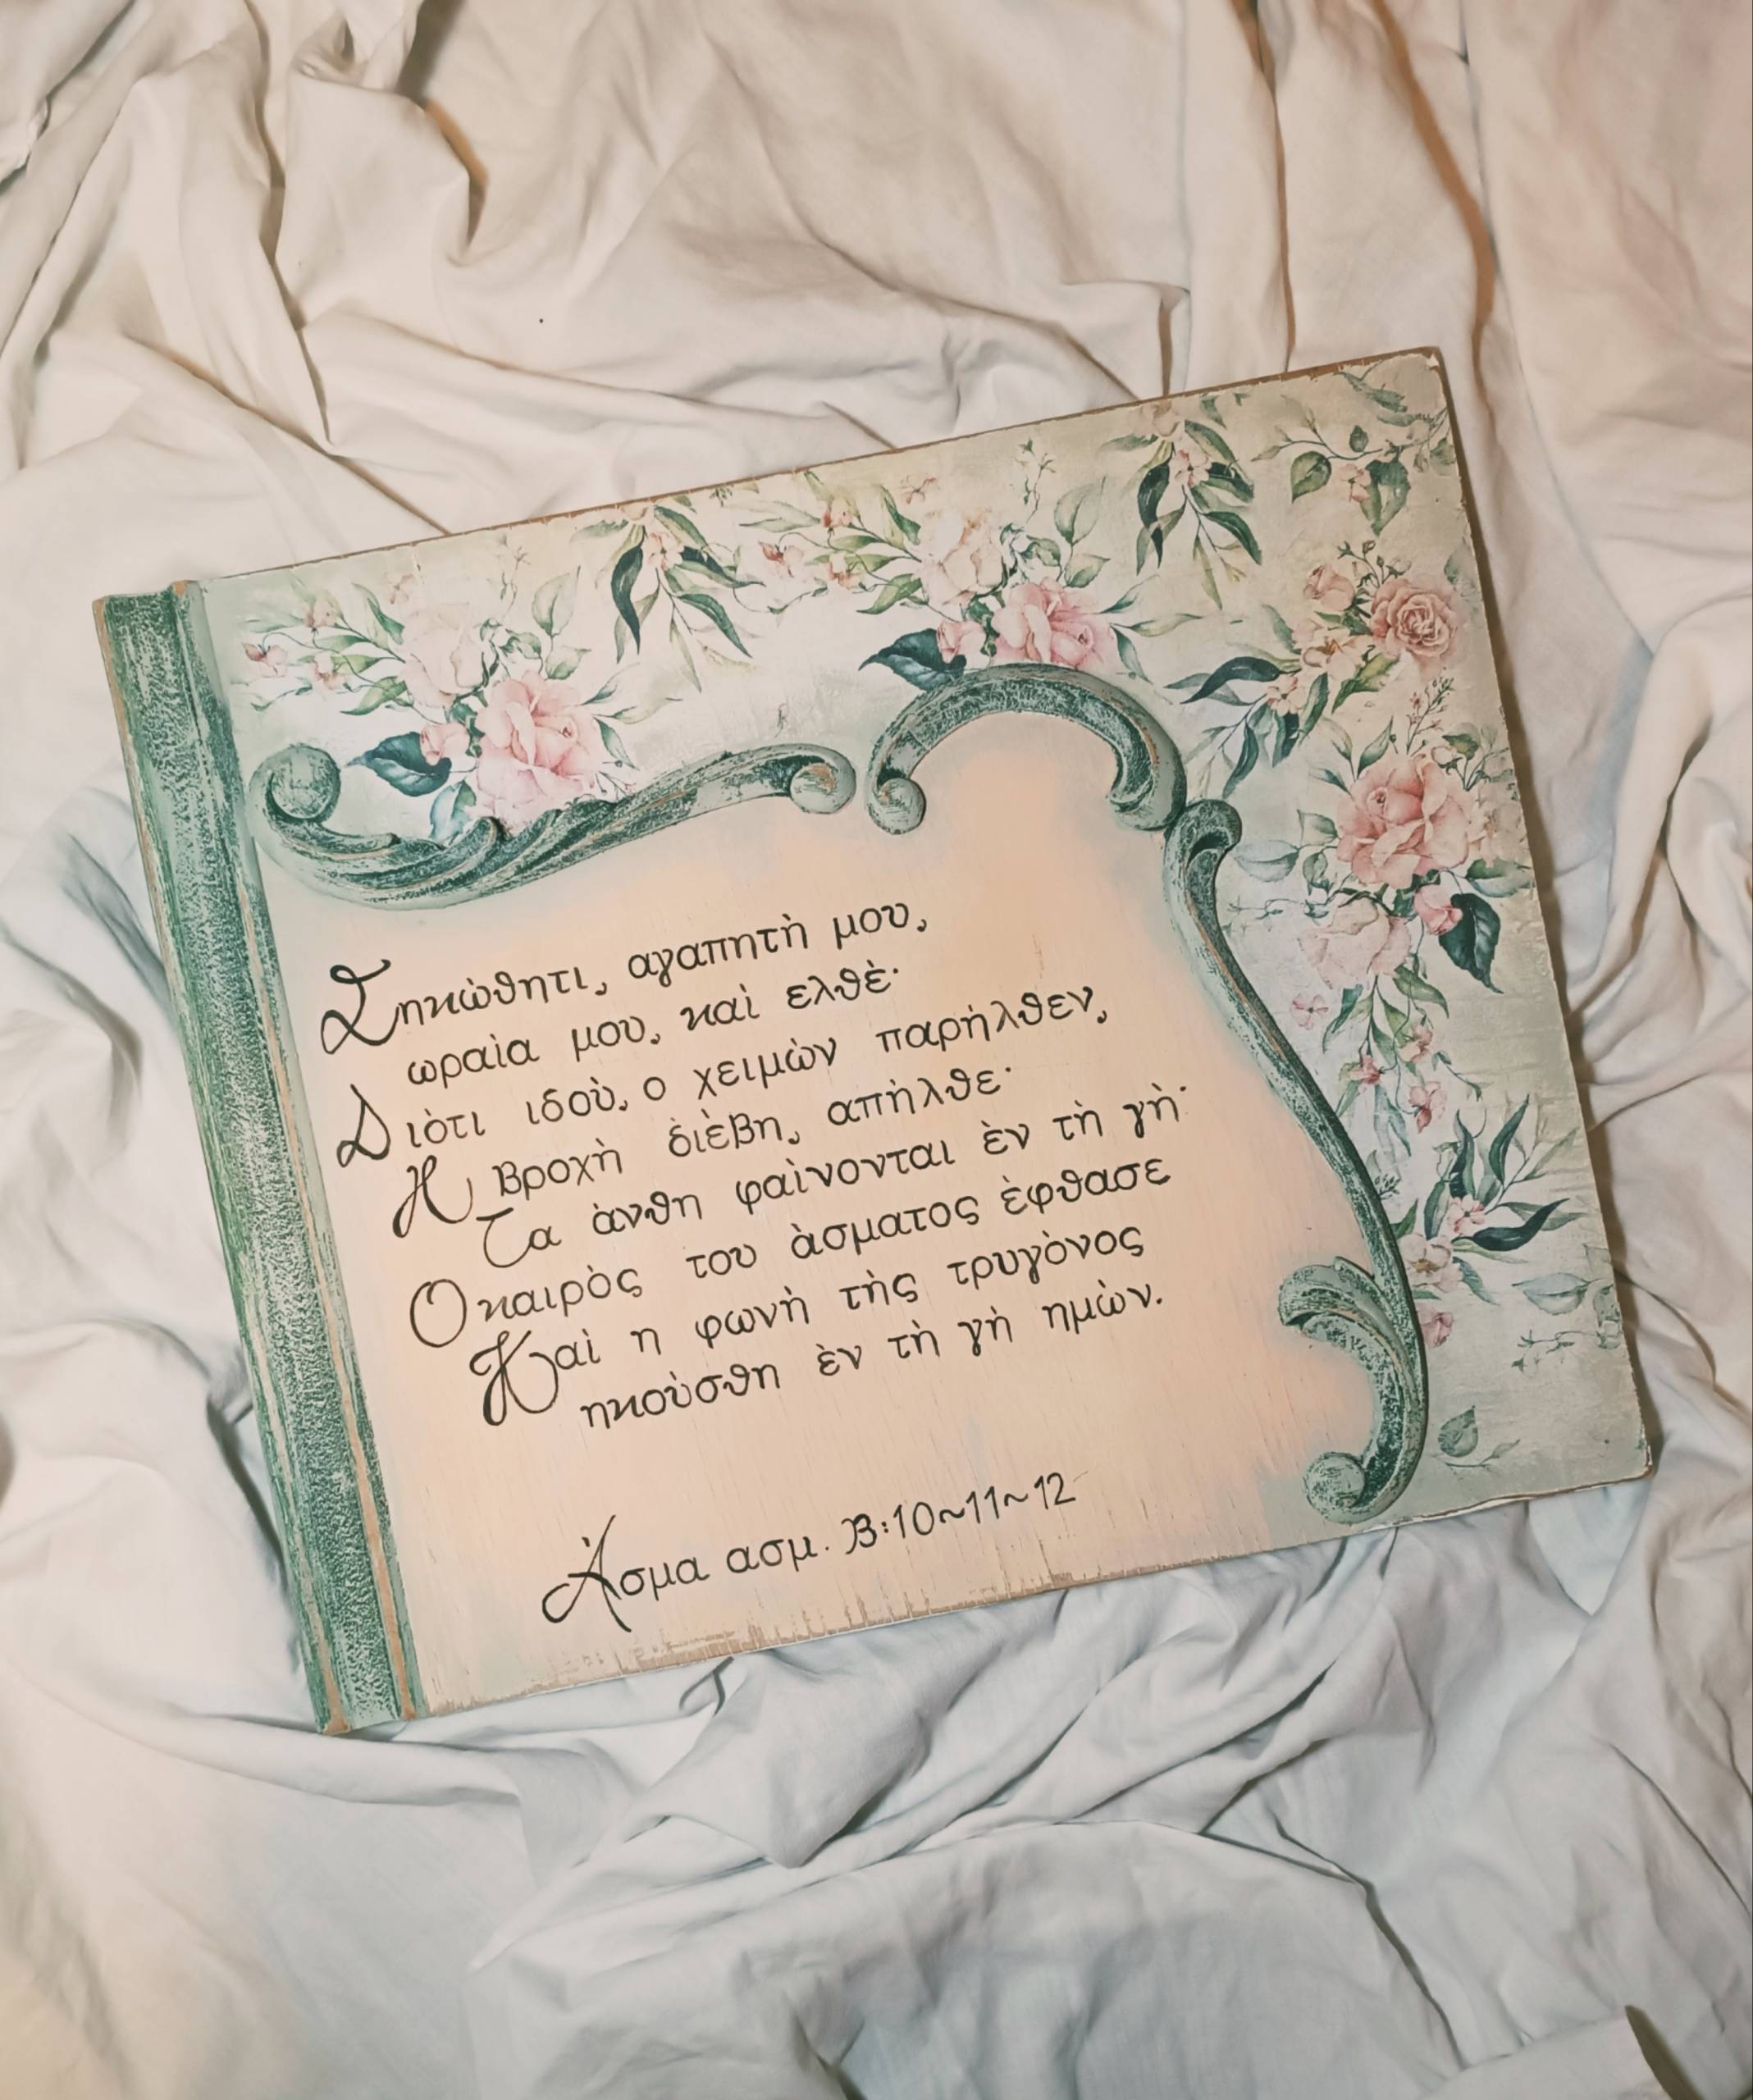 Σηκὼθητι, αγαπητὴ μου,
ωραὶα μου, καὶ ελθὲ·
Διὸτι ιδοὺ, ο χειμὼν παρὴλθεν,
Η βροχὴ διὲβη, απὴλθε·
Τα ὰνθη φαὶνονται ὲν τὴ γὴ·
Ο καιρὸς του ὰσματος ὲφθασε
Καὶ η φωνὴ τὴς τρυγὸνος
ηκοὺσθη ὲν τὴ γὴ ημὼν.
Ἀσμα ασμ. Β:10~11~12